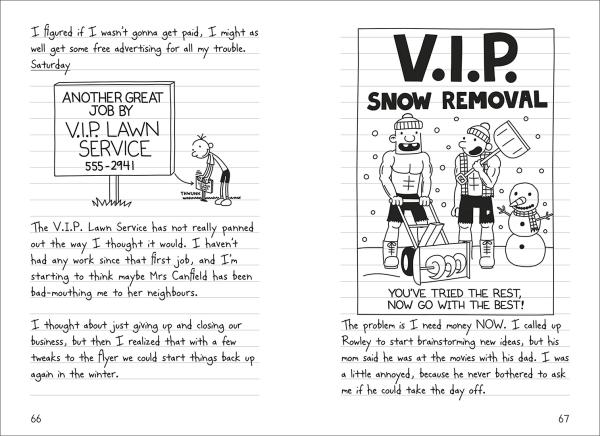 I figured if I wasn't gonna get paid, I might as
well get some free advertising for all my trouble.
Saturday
ANOTHER GREAT
JOB BY
V.I.P. LAWN
SERVICE
555-2941
THWUNK
The V.I.P. Lawn Service has not really panned
out the way I thought it would. I haven't
had any work since that first job, and I'm
starting to think maybe Mrs Canfield has been
bad-mouthing me to her neighbours.
I thought about just giving up and closing our
business, but then I realized that with a few
tweaks to the flyer we could start things back up
again in the winter.
66
V.I.P.
SNOW REMOVAL
YOU'VE TRIED THE REST,
NOW GO WITH THE BEST!
The problem is I need money NOW. I called up
Rowley to start brainstorming new ideas, but his
mom said he was at the movies with his dad. I was
a little annoyed, because he never bothered to ask
me if he could take the day off.
67